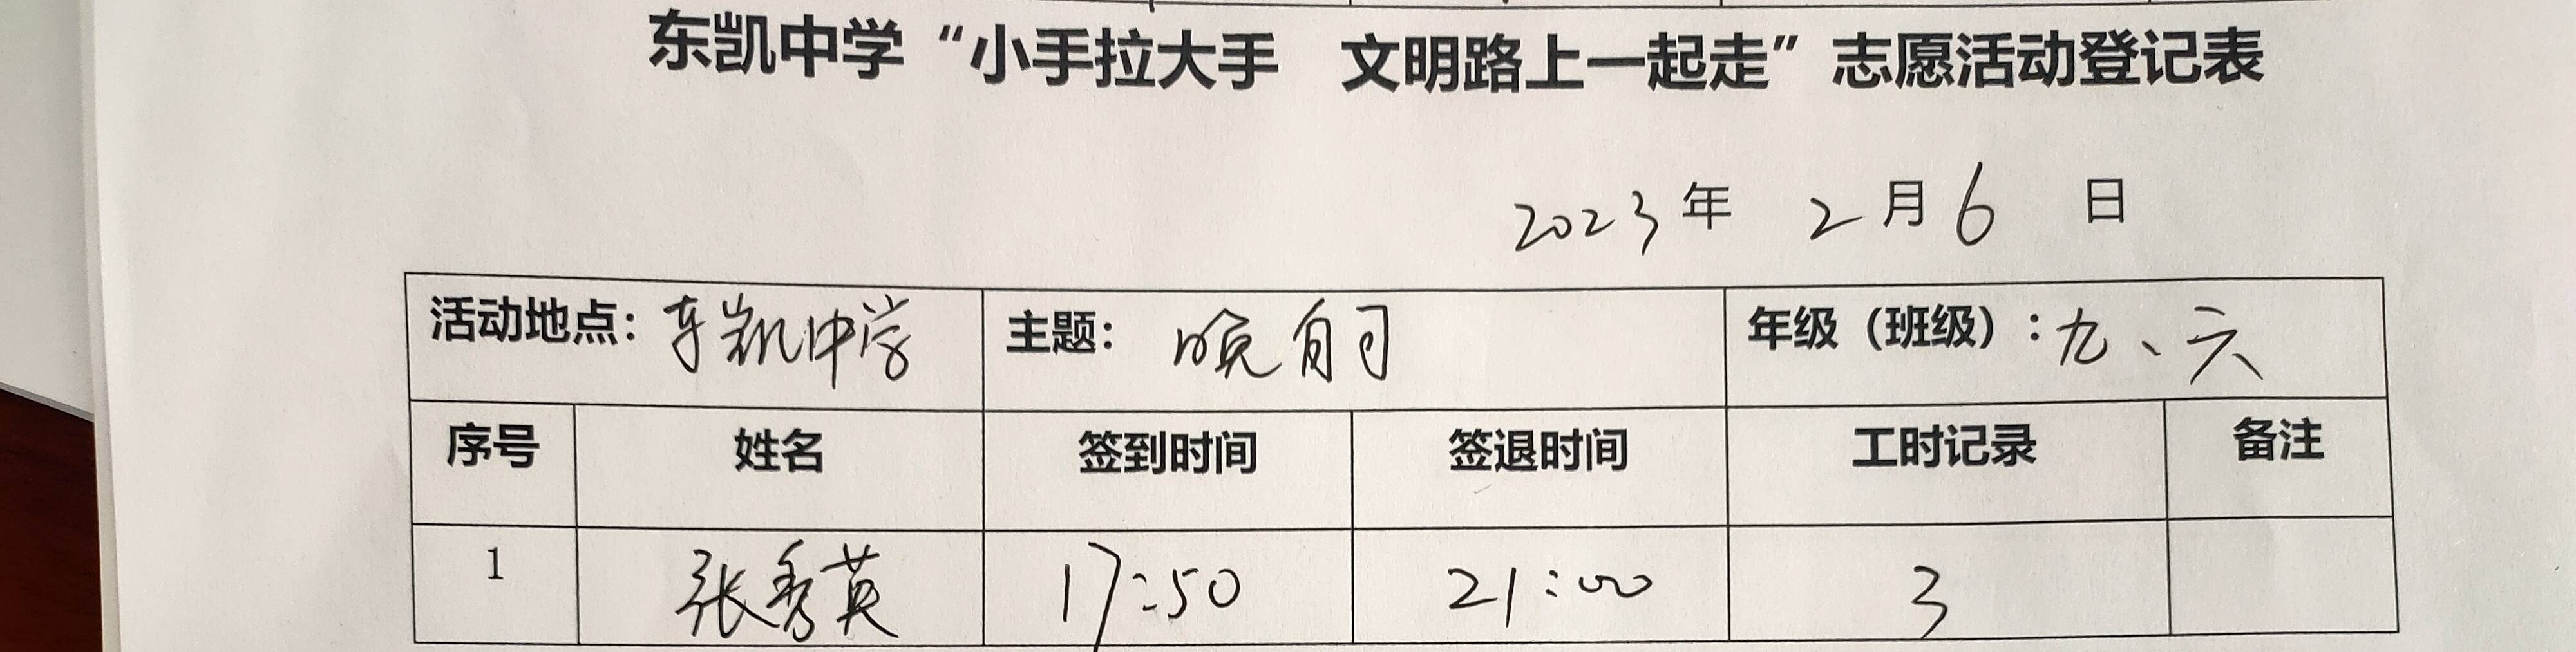 东凯中学“小手拉大手 文明路上一起走”志愿活动登记表
2023年 2月6 日
活动地点：东凯中学 主题： 晚自习 年级（班级）：九、六
序号 姓名 签到时间 签退时间 工时记录 备注
1 张秀英 17:50 21:00 3